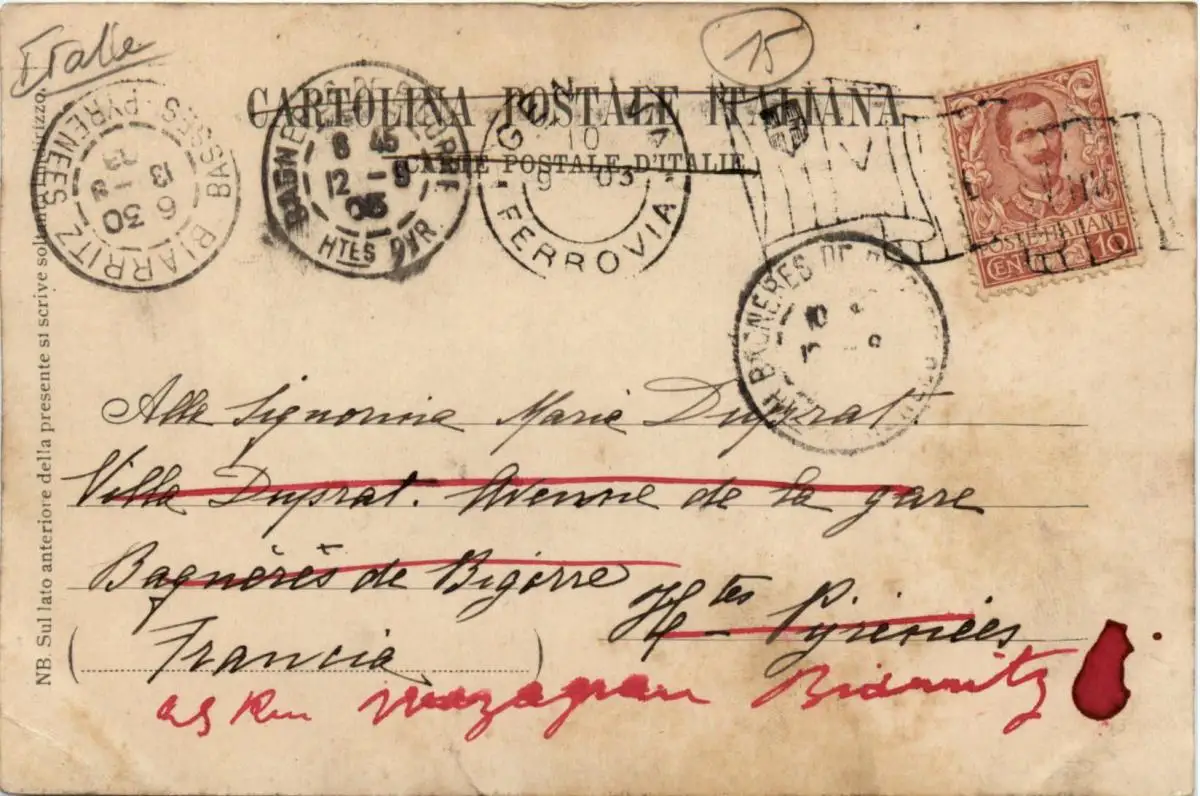 Italie
15
CARTOLINA POSTALE ITALIANA
CARTE POSTALE D'ITALIE
BIARRITZ BASSES-PYRENEES
6 30
13 - 9
03
BAGNERES-DE-BIGORRE
8 45
12 - 9
03
HTES PYR.
GENOVA
10
9 03
FERROVIA
POSTE ITALIANE
CENT. 10
BAGNERES DE BIGORRE
10
Alla Signorina Marie Duprat.
Villa Duprat. Avenue de la gare
Bagnères de Bigorre
Htes Pyrénées
(Francia)
25 Rue Mazagran Biarritz
NB. Sul lato anteriore della presente si scrive soltanto l'indirizzo.